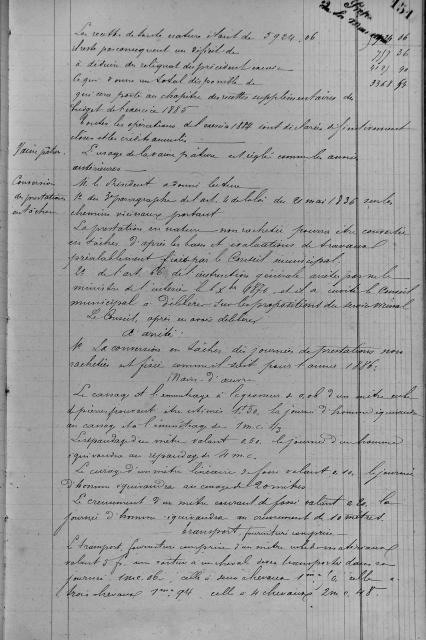 151
La recette de toute nature étant de 3924.06
Reste par conséquent un déficit de
à déduire du reliquat du précédent exercice
ce qui donne un total disponible de
qui sera porté au chapitre des recettes supplémentaires du
budget de l'exercice 1885
Toutes les opérations de l'exercice 1884 sont déclarées définitivement
closes et les crédits annulés
Vaine pâture. L'usage de la vaine pâture est réglé comme les années
antérieures
Conversion des prestations en tâches
M. le Président a donné lecture
1º du 3e paragraphe de l'art. 4 de la loi du 21 mai 1836 sur les
chemins vicinaux portant
La prestation en nature non rachetée pourra être convertie
en tâches d'après les bases et évaluations de travaux
préalablement fixées par le Conseil municipal.
2º de l'art. de l'instruction générale arrêtée par le
ministre de l'intérieur le 1870 et il a invité le Conseil
municipal à délibérer sur les propositions du service vicinal
Le Conseil, après en avoir délibéré
a arrêté
1º La conversion en tâches des journées de prestations non
rachetées est fixée comme il suit pour l'année 1886.
Main-d'œuvre
Le cassage et l'emmétrage à la grosseur de 0,06 d'un mètre cube
de pierre pouvant être estimés 1f.50, la journée d'homme équivaudra
au cassage et à l'emmétrage de 1 m.c.
Le répandage d'un mètre valant 0.50, la journée d'un homme
équivaudra au répandage de 4 m.c.
Le curage d'un mètre linéaire de fossé valant 0.10, la journée
d'homme équivaudra au curage de 20 mètres
Le creusement d'un mètre courant de fossé valant 0.20, la
journée d'homme équivaudra au creusement de 10 mètres.
Transport, fourniture comprise
Le transport, fourniture comprise d'un mètre cube de matériaux
valant 5 f. une voiture à un cheval devra transporter dans sa
journée 1 mc. 06, celle à deux chevaux celle à
trois chevaux 1 m. 94, celle à 4 chevaux 2 m.c. 48